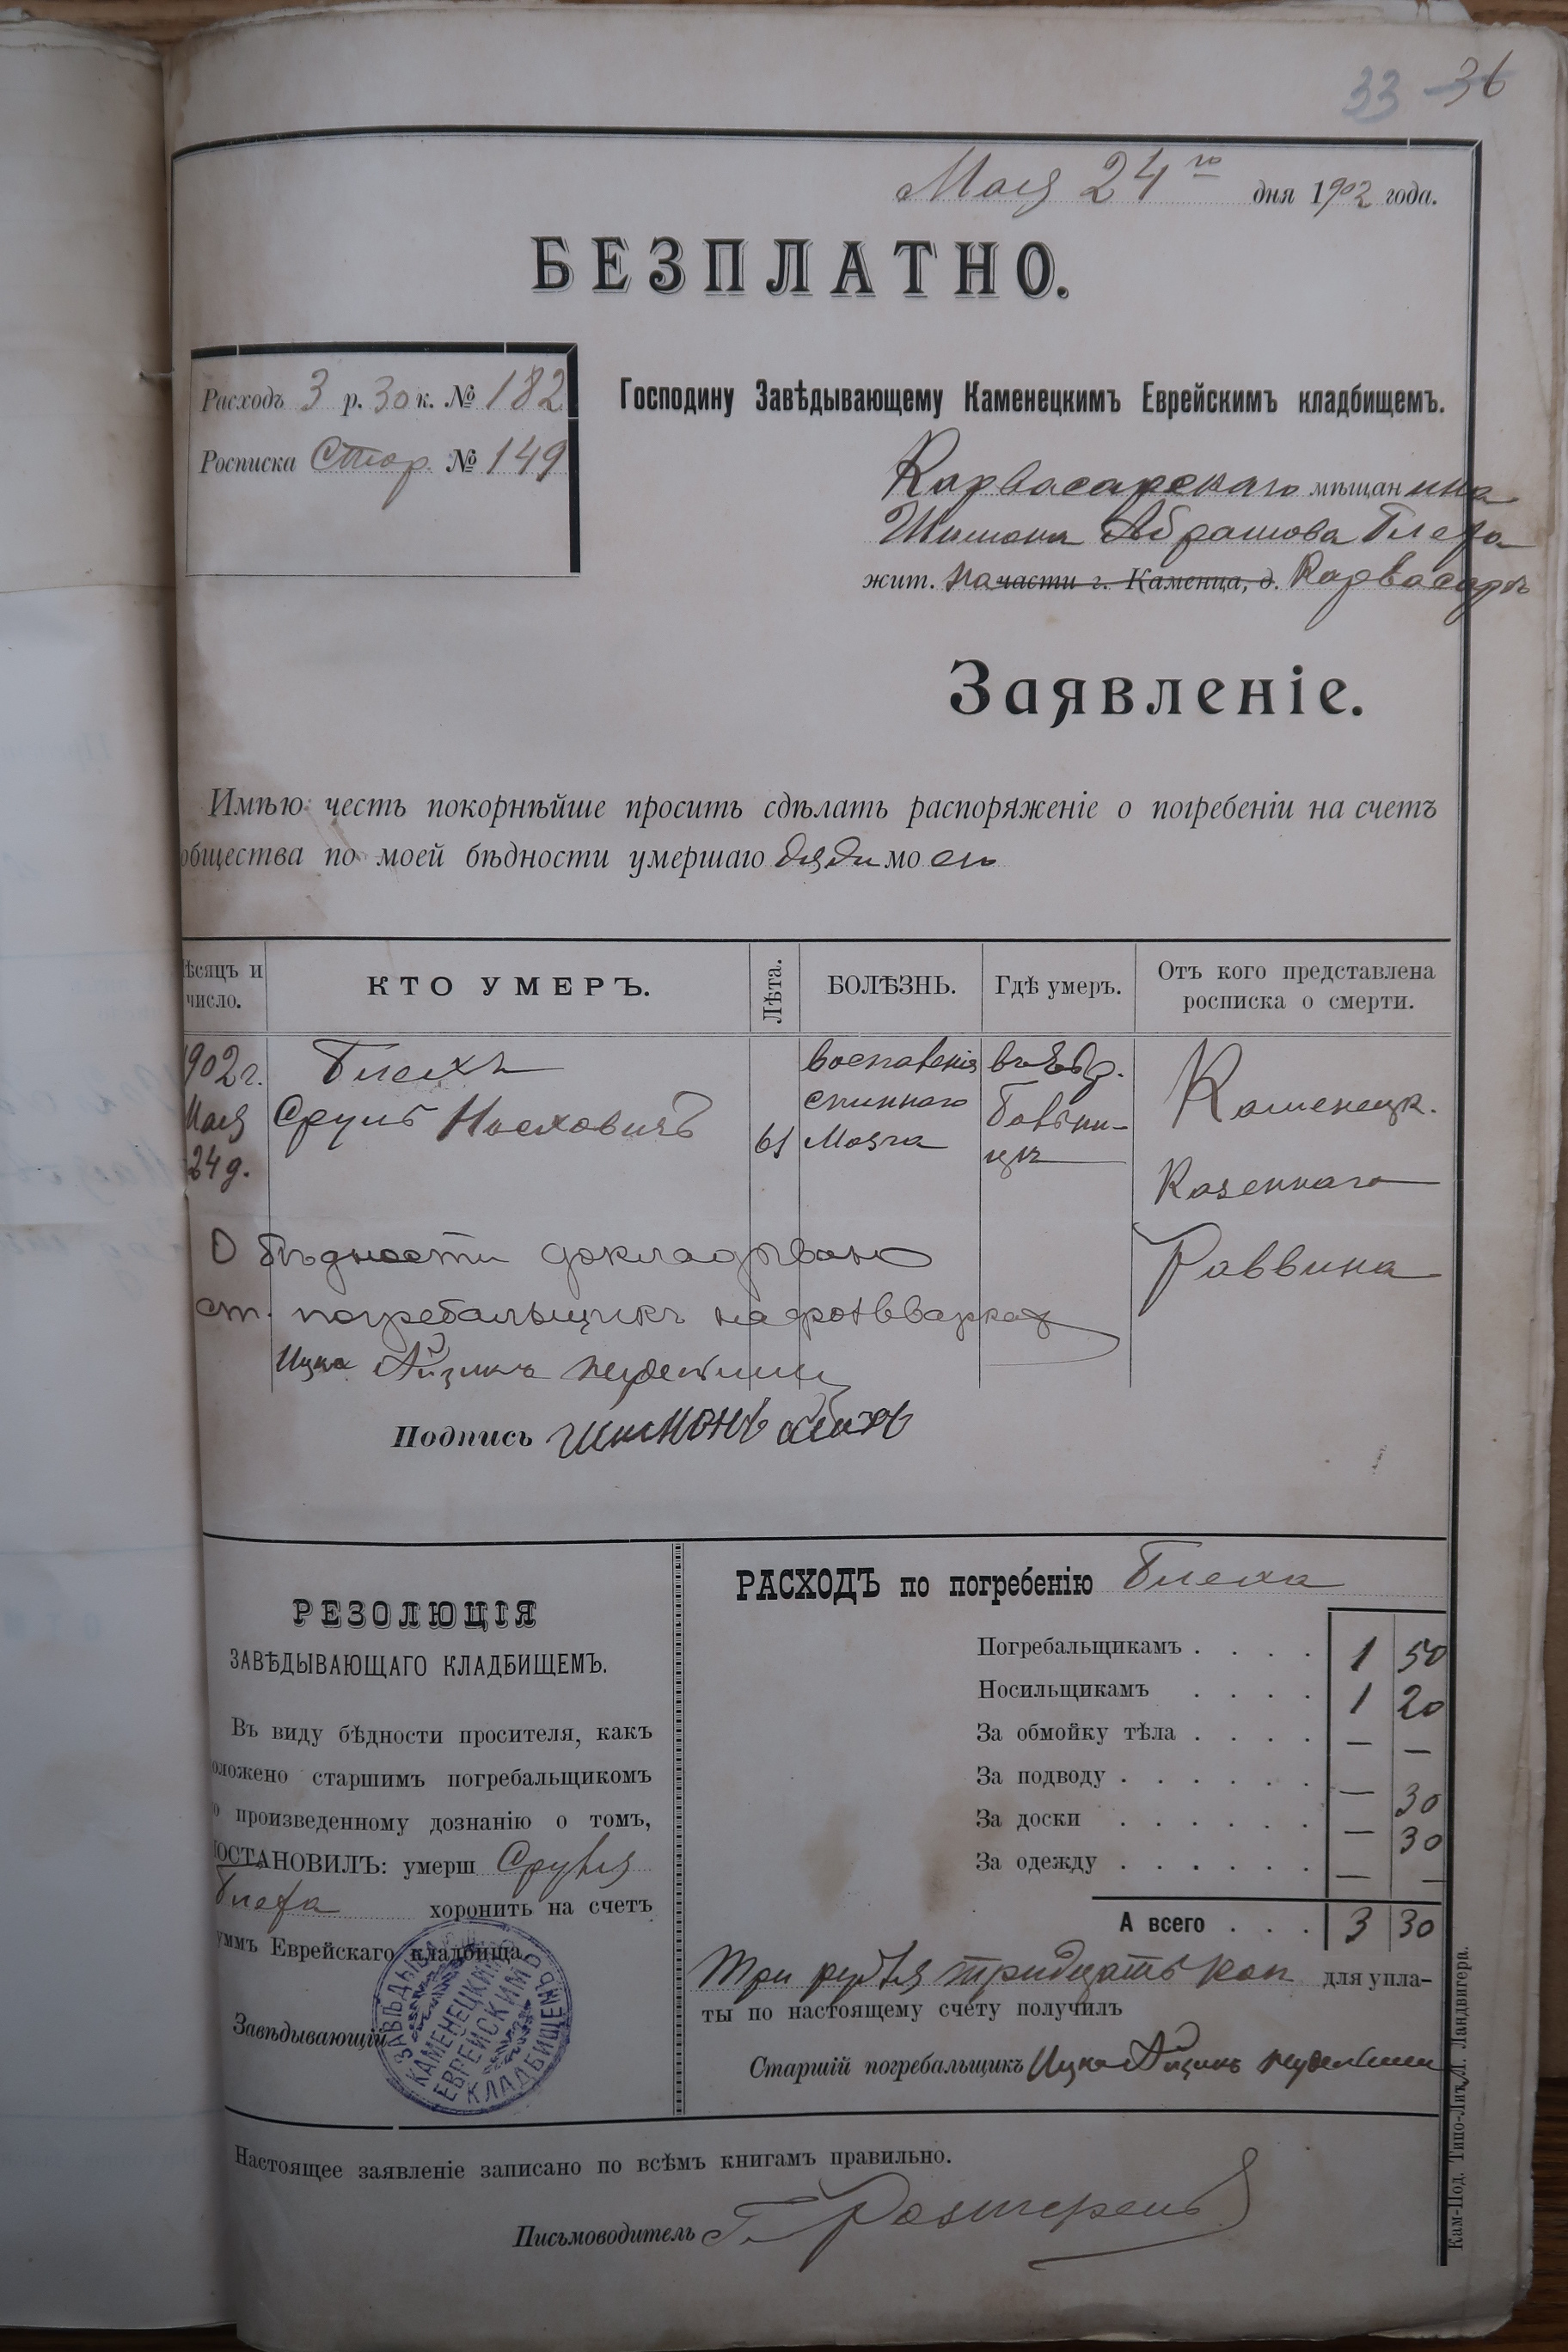 33 36
Мая 24го дня 1902 года.
БЕЗПЛАТНО.
Расходъ 3 р. 30 к. № 182
Росписка Стор. № 149
Господину Завѣдывающему Каменецкимъ Еврейскимъ кладбищемъ.
Карвасарскаго мѣщанина
Шимона Абрамова Блеха
жит. на части г. Каменца, д. Карвасарѣ
Заявленіе.
Имѣю честь покорнѣйше просить сдѣлать распоряженіе о погребеніи на счетъ
общества по моей бѣдности умершаго дяди моего
ѣсяцъ и число.
КТО УМЕРЪ.
Лѣта.
БОЛѢЗНЬ.
Гдѣ умеръ.
Отъ кого представлена росписка о смерти.
1902 г.
Мая
24 д.
Блехъ
Сруль Іосховичъ
61
воспаленія
спиннаго
Мозга
въ Евр.
Больни-
цѣ
Каменецк.
Казеннаго
Раввина
О бѣдности докладываю
ст. погребальщикъ
Ицко Айзикъ
Подпись Шимонъ Блехъ
РЕЗОЛЮЦІЯ
ЗАВѢДЫВАЮЩАГО КЛАДБИЩЕМЪ.
Въ виду бѣдности просителя, какъ
оложено старшимъ погребальщикомъ
о произведенному дознанію о томъ,
ПОСТАНОВИЛЪ: умерш Сруля
Блеха хоронить на счетъ
уммъ Еврейскаго кладбища.
Завѣдывающій
ЗАВѢДЫВАЮЩІЙ КАМЕНЕЦКИМЪ ЕВРЕЙСКИМЪ КЛАДБИЩЕМЪ
РАСХОДЪ по погребенію Блеха
Погребальщикамъ . . . . 1 50
Носильщикамъ . . . . 1 20
За обмойку тѣла . . . . — —
За подводу . . . . . . — 30
За доски . . . . . . — 30
За одежду . . . . . . — —
А всего . . . 3 30
Три рубля тридцать коп для упла-
ты по настоящему счету получилъ
Старшій погребальщикъ Ицко Айзикъ
Настоящее заявленіе записано по всѣмъ книгамъ правильно.
Письмоводитель
Кам-Под. Типо-Лит. Л. Ландвигера.